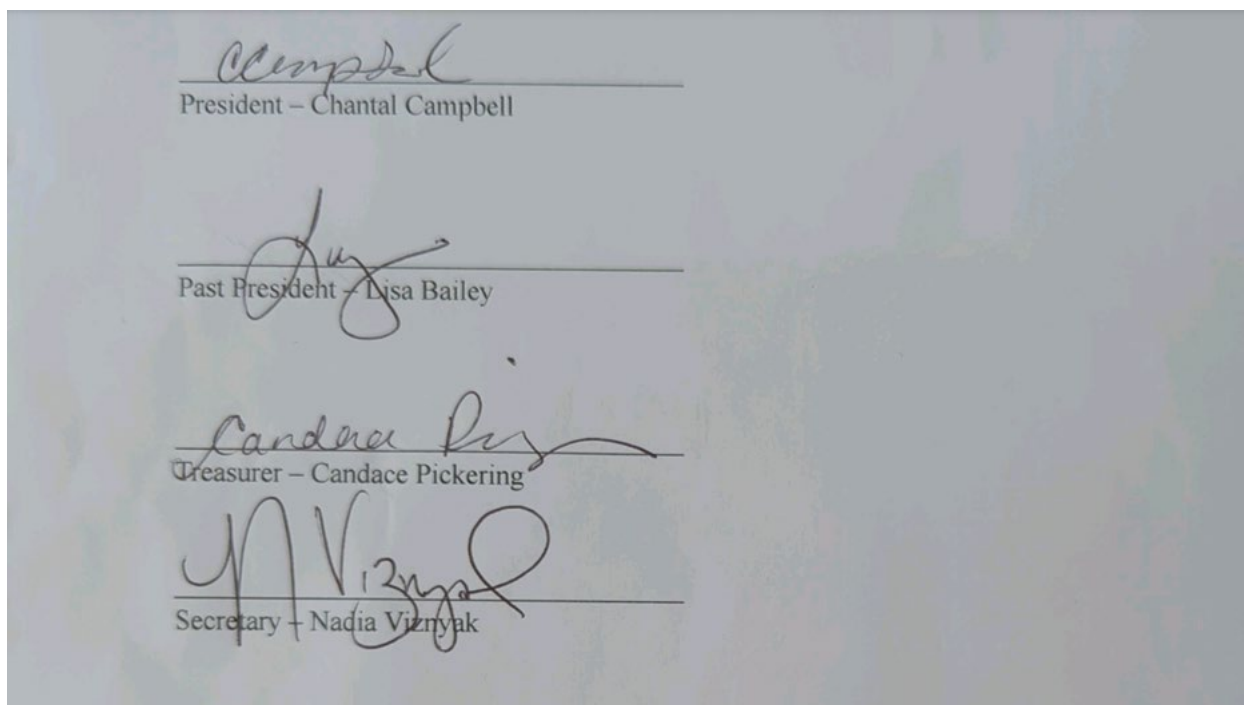 CCampbell
President – Chantal Campbell
Past President – Lisa Bailey
Candace
Treasurer – Candace Pickering
N Viznyak
Secretary – Nadia Viznyak